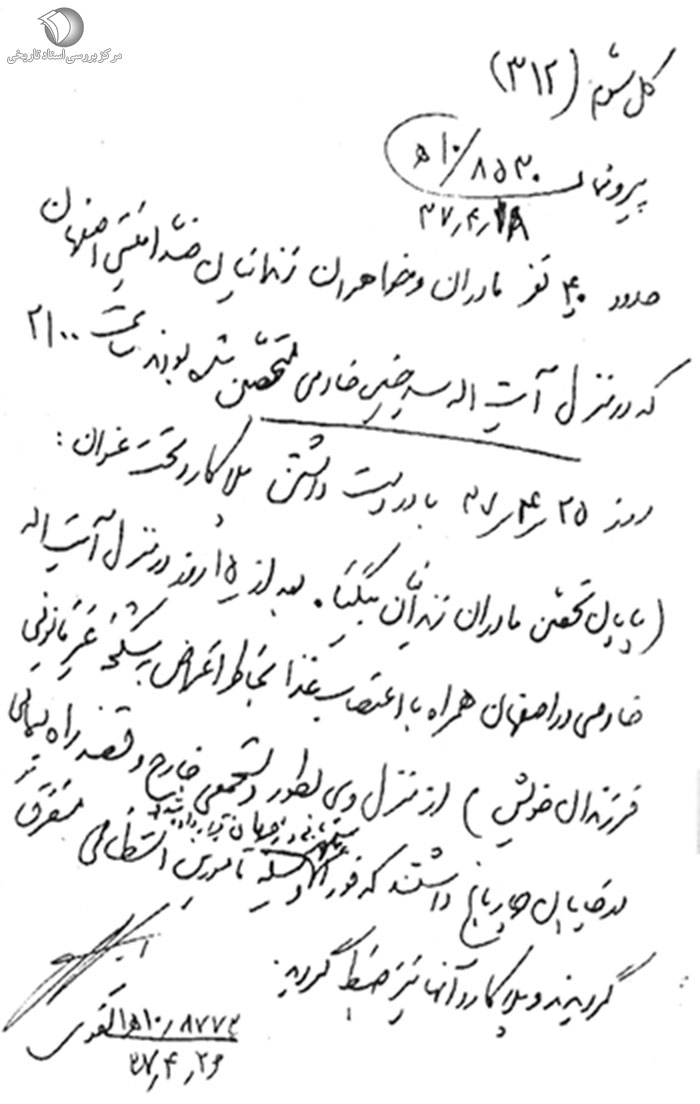 مرکز بررسی اسناد تاریخی
کل سوم (۳۱۲)
پیرو شماره ۸۵۳۰/۱۰ه
۳۷٫۴٫۱۸
حدود ۴۰ نفر مادران و خواهران زندانیان ضد امنیتی اصفهان
که در منزل آیت اله سید حسین خادمی متحصن شده بودند ساعت ۲۱۰۰
روز ۳۷٫۴٫۲۵ با در دست داشتن پلاکارد تحت عنوان :
(پایان تحصن مادران زندانیان بعد از ۱۵ روز در منزل آیت اله
خادمی در اصفهان همراه با اعتصاب غذا بخاطر اعتراض به شکنجه غیر قانونی
فرزندان خویش) از منزل وی بطور دستجمعی خارج و قصد راه پیمائی
در خیابان چهارباغ داشتند که فوراً
بوسیله مامورین انتظامی متفرق
گردیدند و پلاکارد آنها نیز ضبط گردید
۸۷۷۳/۱۰ه۱
۳۷٫۴٫۲۶